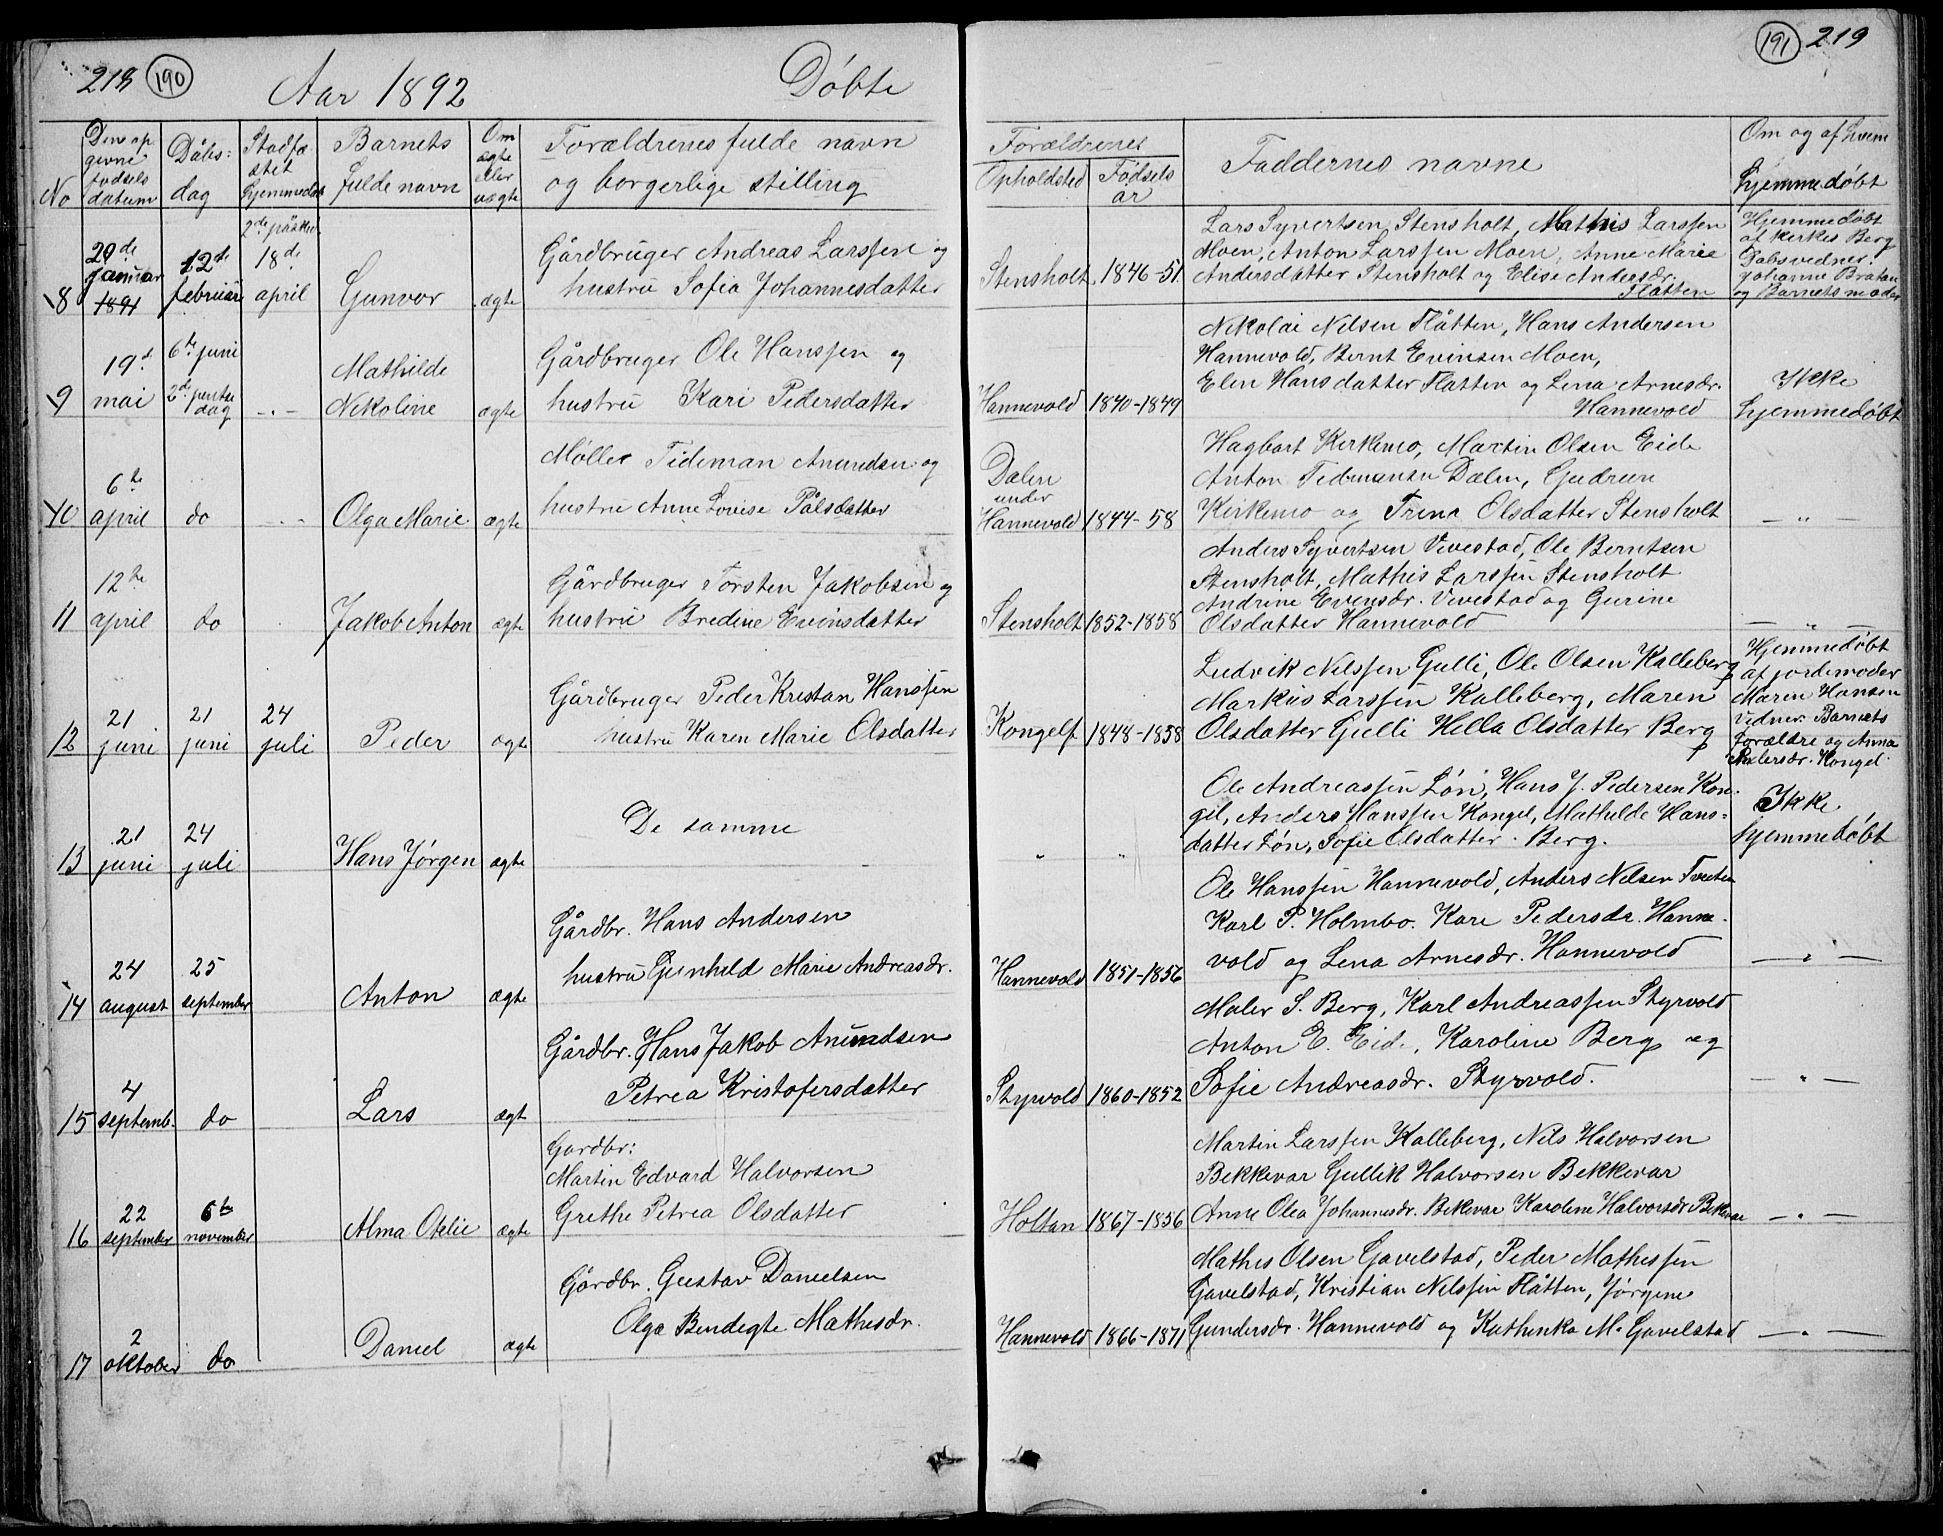 218 190
Aar 1892 Døbte
No
Den op
givne
fødsels
datum
Dåbs:
dag
Stadfæ
stet
hjemmedåb
Barnets
fulde navn
Om
ægte
eller
uægte
Forældrenes fulde navn
og borgerlige stilling
8
29de
januar
1891
12te
februar
2de påskd.
18de
april
Gunvor
ægte
Gårdbruger Andreas Larssen og
hustru Sofia Johannesdatter
9
19d
mai
6te juni
2de pintse
dag
-.-
Mathilde
Nikoline
ægte
Gårdbruger Ole Hanssen og
hustru Kari Pedersdatter
10
6te
april
do
Olga Marie
ægte
Møller Tideman Amundsen og
hustru Anne Lovise Pålsdatter
11
12te
april
do
Jakob Anton
ægte
Gårdbruger Torsten Jakobsen og
hustru Bredine Evinsdatter
12
21
juni
21
juni
24
juli
Peder
ægte
Gårdbruger Peder Kristan Hanssen
hustru Karen Marie Olsdatter
13
21
juni
24
juli
Hans Jørgen
ægte
De samme
14
24
august
25
september
Anton
ægte
Gårdbr. Hans Andersen
hustru Gunhild Marie Andreasdr.
15
4
septemb.
do
Lars
ægte
Gårdbr. Hans Jakob Anundsen
Petrea Kristofersdatter
16
22
september
6te
november
Alma Otelie
ægte
Gardbr:
Martin Edvard Halvorsen
Grethe Petrea Olsdatter
17
2
oktober
do
Daniel
ægte
Gårdbr. Gustav Danielsen
Olga Bendegte Mathisdr.
191 219
Forældrenes
Opholdsted
Fødsels
år
Faddernes navne
Om og af hvem
hjemmedøbt
Stensholt
1846-51
Lars Syvertsen Stensholt, Mathis Larssen
Moen, Anton Larssen Moen, Anne Marie
Andersdatter Stensholt og Elise Andersdr.
Flåtten
Hjemmedøbt
af kirkes Berg
Dåbsvedner.
Johanne Bratan
og Barnets moder
Hannevold
1840-1849
Nikolai Nilsen Flåtten, Hans Andersen
Hannevold, Bernt Evinsen Moen,
Elen Hansdatter Flåtten og Lena Arnesdr.
Hannevold
Ikke
hjemmedøbt
Dalen
under
Hannevold
1844-58
Hagbart Kirkemo, Martin Olsen Eide
Anton Tidemansen Dalen, Gudrun
Kirkemo og Trina Olsdatter Stensholt
- " -
Stensholt
1852-1858
Anders Syvertsen Vivestad, Ole Berntsen
Stensholt, Mathis Larssen Stensholt
Andrine Evensdr. Vivestad og Gurine
Olsdatter Hannevold
- " -
Kongelf
1848-1858
Ludvik Nilssen Gulli, Ole Olsen Kalleberg
Markus Larssen Kalleberg, Maren
Olsdatter Gulli Hella Olsdatter Berg
Hjemmedøbt
af jordemoder
Maren Hansen
Vidner: Barnets
forældre og Anna
Pedersdr. Kongel
"
"
Ole Andreassen Løn, Hans J. Pedersen Kon-
gil, Anders Hanssen Kongel, Mathilde Hans=
datter Løn, Sofie Olsdatter. Berg.
Ikke
hjemmedøbt
Hannevold
1851-1856
Ole Hanssen Hannevold, Anders Nilsen Tveten
Karl P. Holmbo. Kari Pedersdr. Hanne-
vold og Lena Arnesdr. Hannevold
- " -
Styrvold
1860-1852
Maler S. Berg, Karl Andreassen Styrvold
Anton E. Eide, Karoline Berg og
Sofie Andreasdr. Styrvold.
- " -
Holtan
1867-1856
Martin Larssen Kalleberg, Nils Halvorsen
Bekkevar Gullik Halvorsen Bekkevar
Anne Olea Johannesdr. Bekevar Karoline Halvorsdr Bekkevar
- " -
Hannevold
1866-1871
Mathis Olsen Gavelstad, Peder Mathissen
Gavelstad, Kristian Nilssen Flåtten, Jørgine
Gundersdr. Hannevold og Kathinka M. Gavelstad
- " -